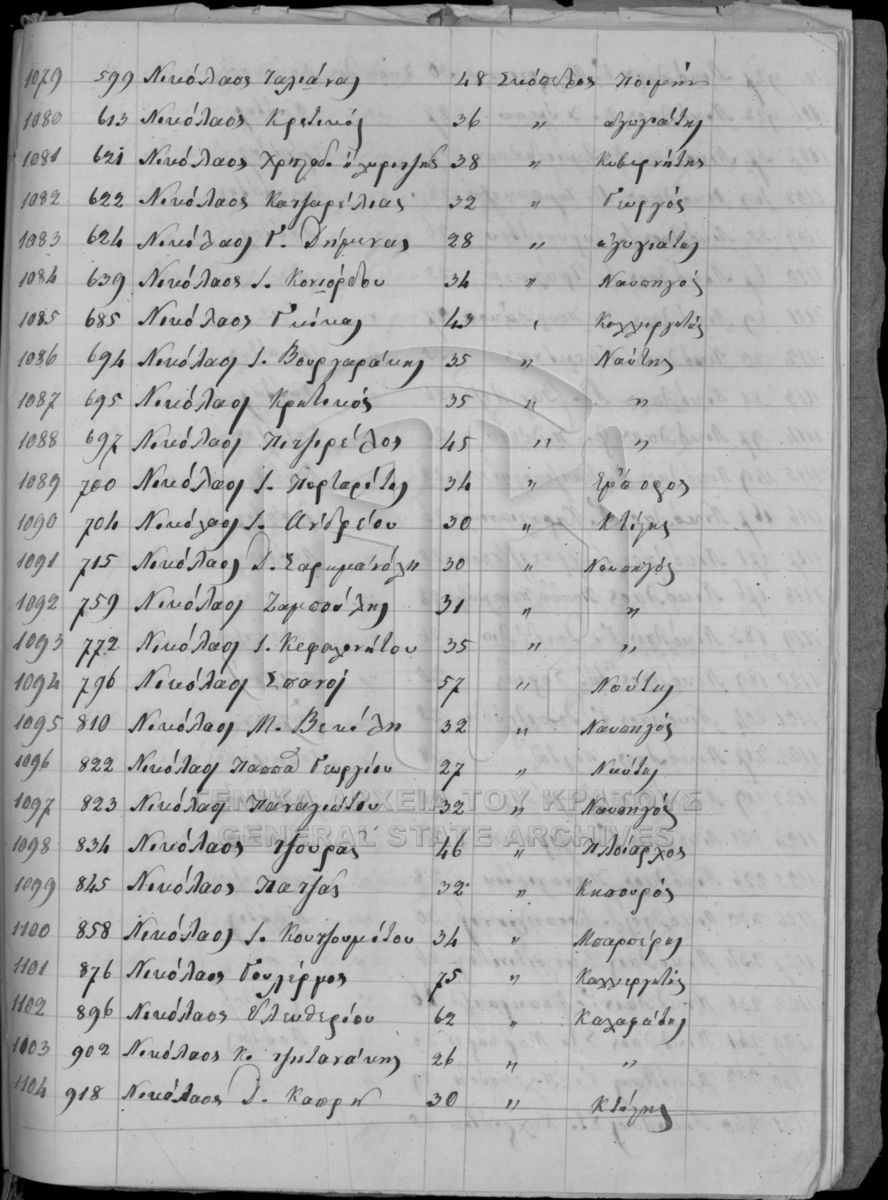 1079 599 Νικόλαος Ταλιάνας 48 Σκόπελος Ποιμήν
1080 613 Νικόλαος Κρετικός 36 〃 αγωγιάτης
1081 621 Νικόλαος 38 〃 Κυβερνήτης
1082 622 Νικόλαος Κατζαρέλιας 32 〃 Γεωργός
1083 624 Νικόλαος Γ. Δήμινας 28 〃 αγωγιάτης
1084 639 Νικόλαος Ι. Κονιόρδου 34 〃 Ναυπηγός
1085 685 Νικόλαος Γκόκας 43 〃 Καλλιεργητής
1086 694 Νικόλαος Ι. Βουργαράκης 35 〃 Ναύτης
1087 695 Νικόλαος Κρητικός 35 〃 〃
1088 697 Νικόλαος Πιτζιρέλος 45 〃 〃
1089 700 Νικόλαος Ι. Πορταρίτης 34 〃 Έμπορος
1090 704 Νικόλαος Ι. Ανδρέου 30 〃 Κτίστης
1091 715 Νικόλαος Δ. 30 〃 Ναυπηγός
1092 759 Νικόλαος Ζαμπούλης 31 〃 〃
1093 772 Νικόλαος Ι. Κεφαλονήτου 35 〃 〃
1094 796 Νικόλαος Σπανός 57 〃 Ναύτης
1095 810 Νικόλαος Μ. Βεκύλη 32 〃 Ναυπηγός
1096 822 Νικόλαος Παππά Γεωργίου 27 〃 Ναύτης
1097 823 Νικόλαος Παναγιώτου 32 〃 Ναυπηγός
ΓΕΝΙΚΑ ΑΡΧΕΙΑ ΤΟΥ ΚΡΑΤΟΥΣ
GENERAL STATE ARCHIVES
1098 834 Νικόλαος Τζουράς 46 〃 Πλοίαρχος
1099 845 Νικόλαος Πατζάς 32 〃 Κηπουρός
1100 858 Νικόλαος Ι. Κουτζουμότου 34 〃 Μπαρπέρης
1101 876 Νικόλαος Γουλέρμος 75 〃 Καλλιεργητής
1102 896 Νικόλαος Ελευθερίου 62 〃 Καλαφάτης
1103 902 Νικόλαος Κ. Τζιτανάκης 26 〃 〃
1104 918 Νικόλαος Δ. Καπρή 30 〃 Κτίστης